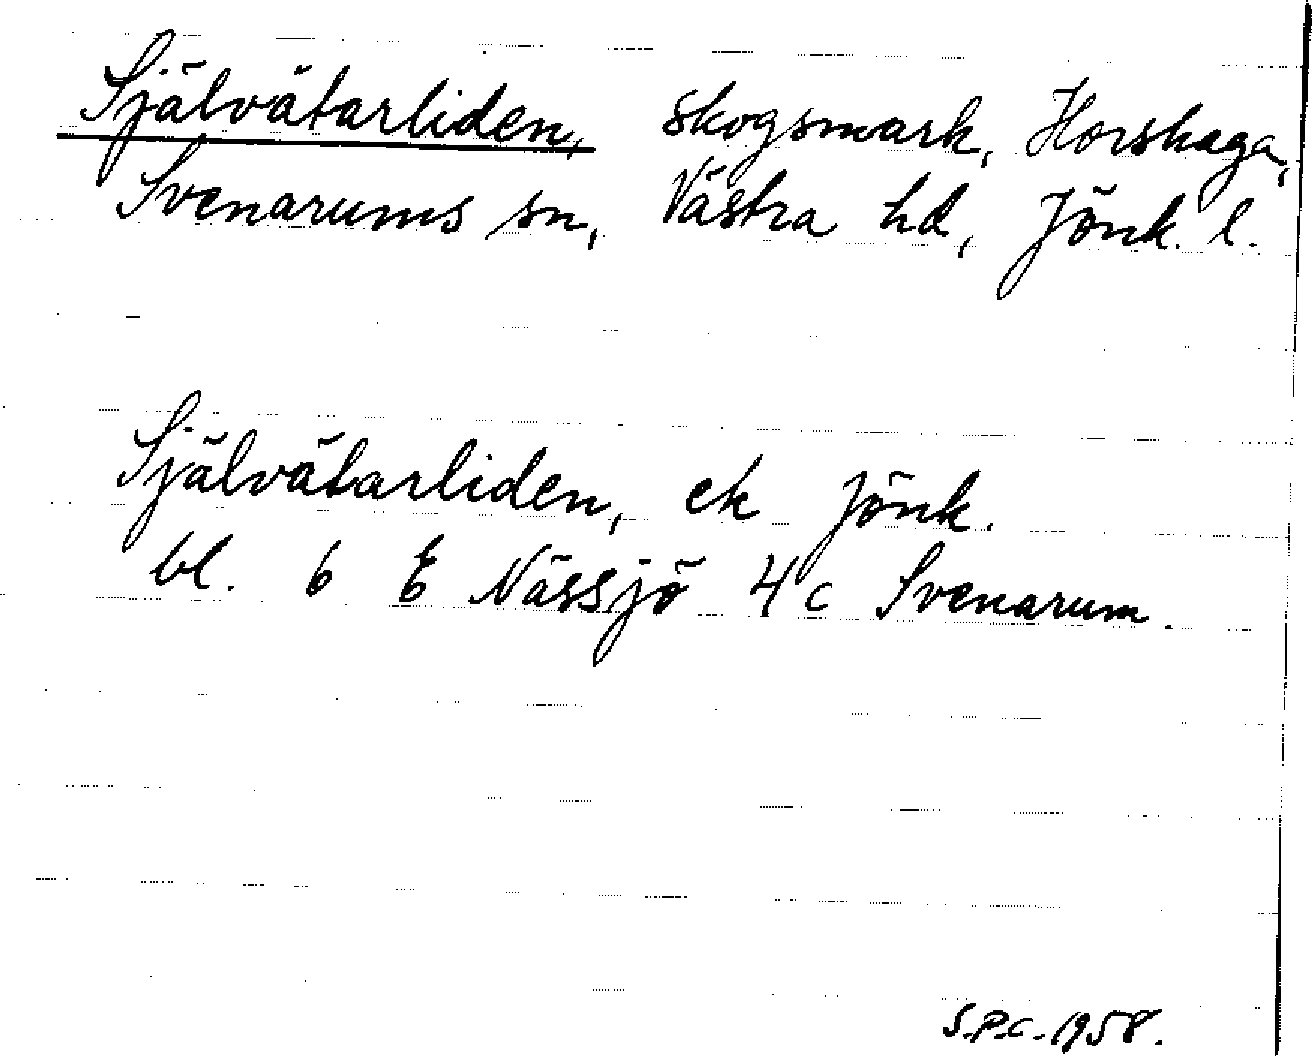 Självätarliden, skogsmark, Horshaga,
Svenarums sn, Västra hd, Jönk. l.
Självätarliden, ek Jönk.
bl. 6 E Nässjö 4 c Svenarum.
S.P.C. 1958.